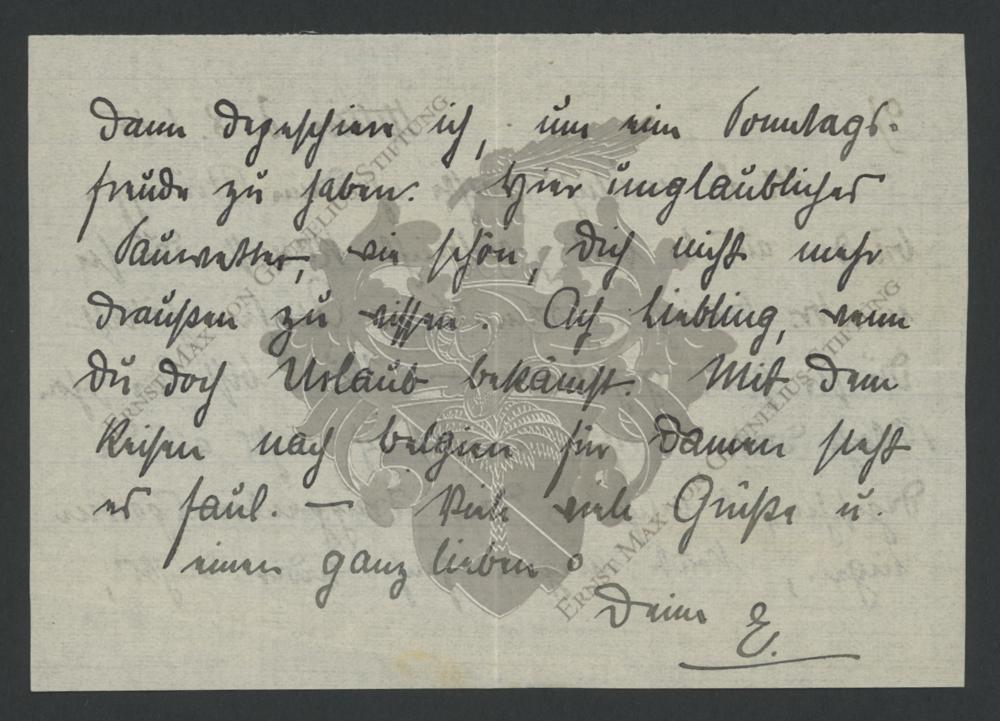 dann depeschiere ich, um eine Sonntags-
freude zu haben. Hier unglaubliches
Sauwetter, wie schön, Dich nicht mehr
draußen zu wissen. Ach Liebling, wenn
Du doch Urlaub bekämst. Mit dem
Reisen nach Belgien für Damen steht
es faul. — Viele viele Grüße u.
einen ganz lieben o
Deine E.
ERNST MAX VON GRUNELIUS-STIFTUNG
ERNST MAX VON GRUNELIUS-STIFTUNG